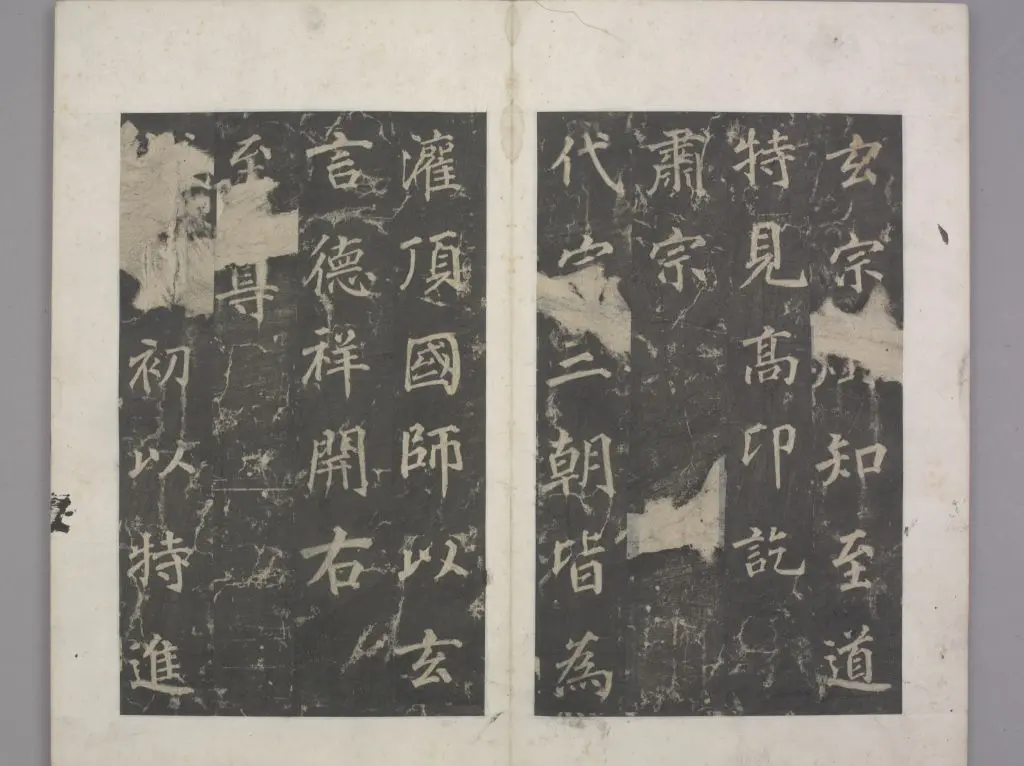 玄宗知至道
特見高卬訖
肅宗
代宗三朝皆為
灌頂國師以玄
言德祥開右
至尊
初以特進